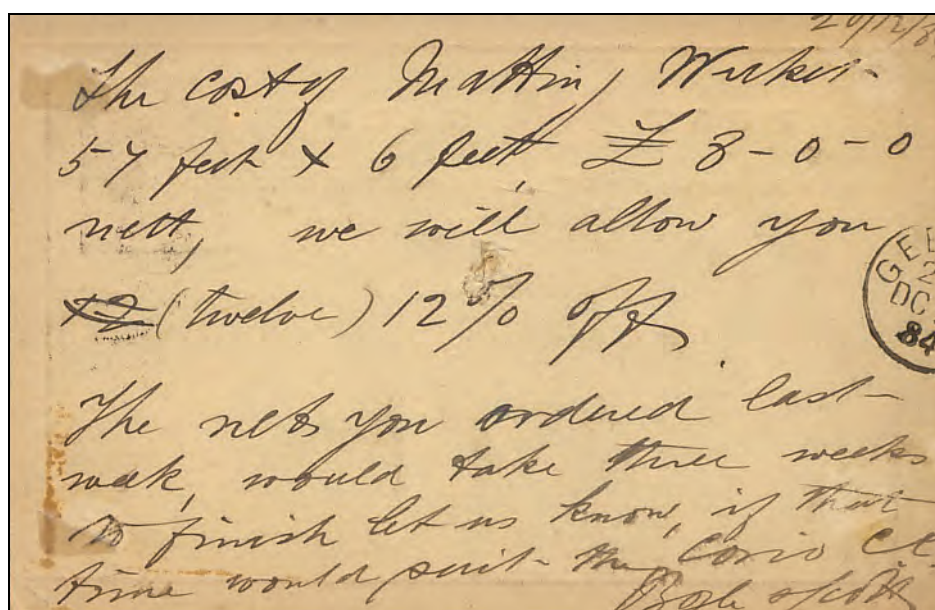 20/12/8
The cost of Matting Wicket-
57 feet x 6 feet, £ 8-0-0
nett, we will allow you
12 (twelve) 12% off.
GEE
2
DC
84
The nets you ordered last-
week, would take three weeks
to finish let us know, if that
time would suit- the Corio CC.